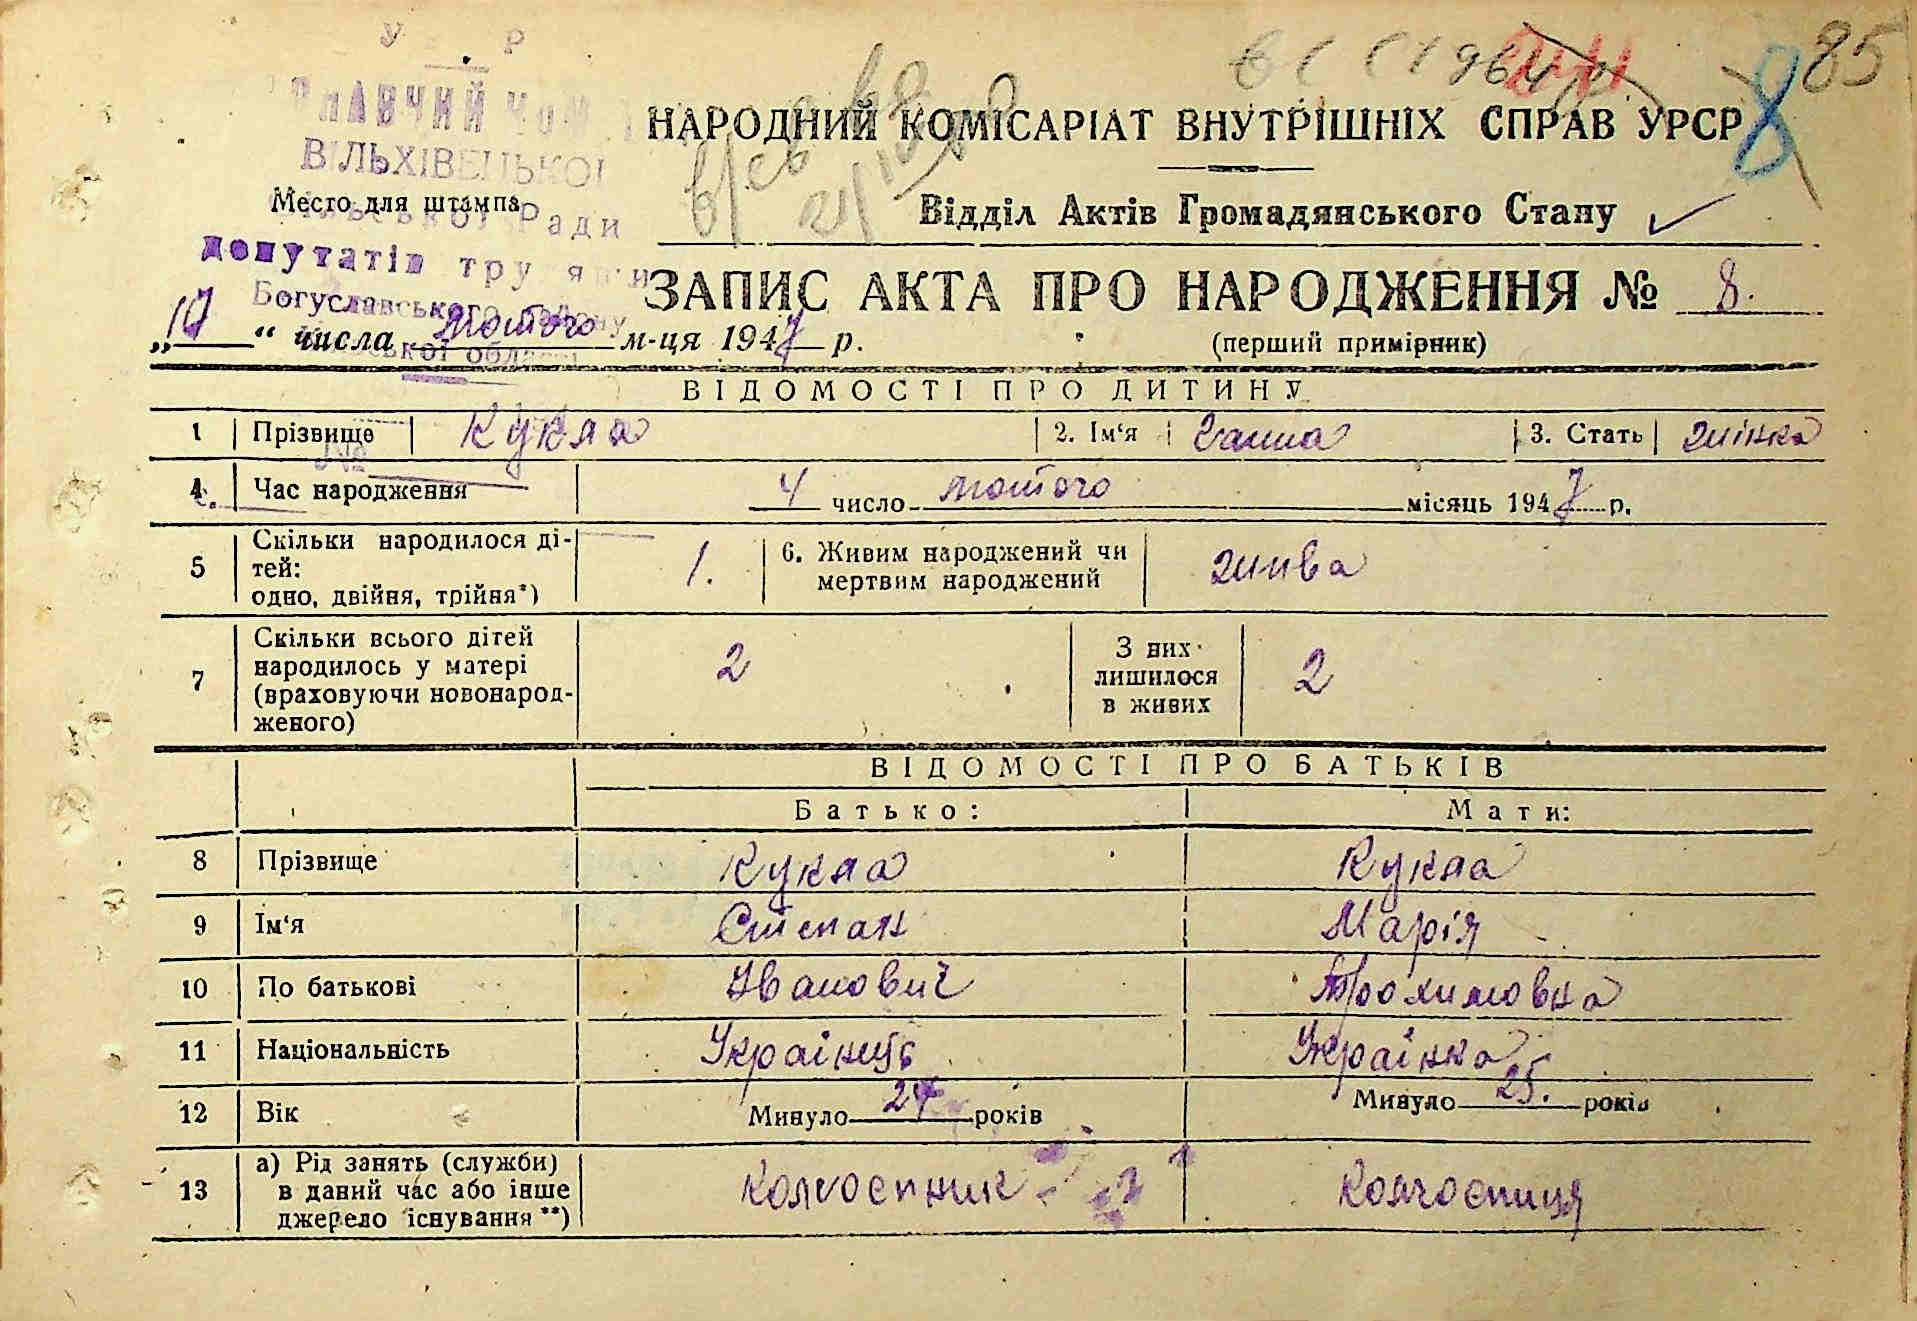 85
8
НАРОДНИЙ КОМІСАРІАТ ВНУТРІШНІХ СПРАВ УРСР
ВІЛЬХІВЕЦЬКОЇ
Место для штампа
Ради
Відділ Актів Громадянського Стану
депутатів трудящих
Богуславського району
ЗАПИС АКТА ПРО НАРОДЖЕННЯ № 8.
„17“ числа лютого м-ця 1947 р.
(перший примірник)
ВІДОМОСТІ ПРО ДИТИНУ
1 Прізвище Кукла 2. Ім‘я Ганна 3. Стать жінка
4. Час народження 4 число лютого місяць 1947 р.
5 Скільки народилося ді-
тей:
одно, двійня, трійня*) 1. 6. Живим народжений чи
мертвим народжений жива
7 Скільки всього дітей
народилось у матері
(враховуючи новонарод-
женого) 2 З них
лишилося
в живих 2
ВІДОМОСТІ ПРО БАТЬКІВ
Батько: Мати:
8 Прізвище Кукла Кукла
9 Ім‘я Степан Марія
10 По батькові Іванович Трохимовна
11 Національність Українець Українка
12 Вік Минуло 24 років Минуло 25. років
13 а) Рід занять (служби)
в даний час або інше
джерело існування **) колгоспник колгоспниця